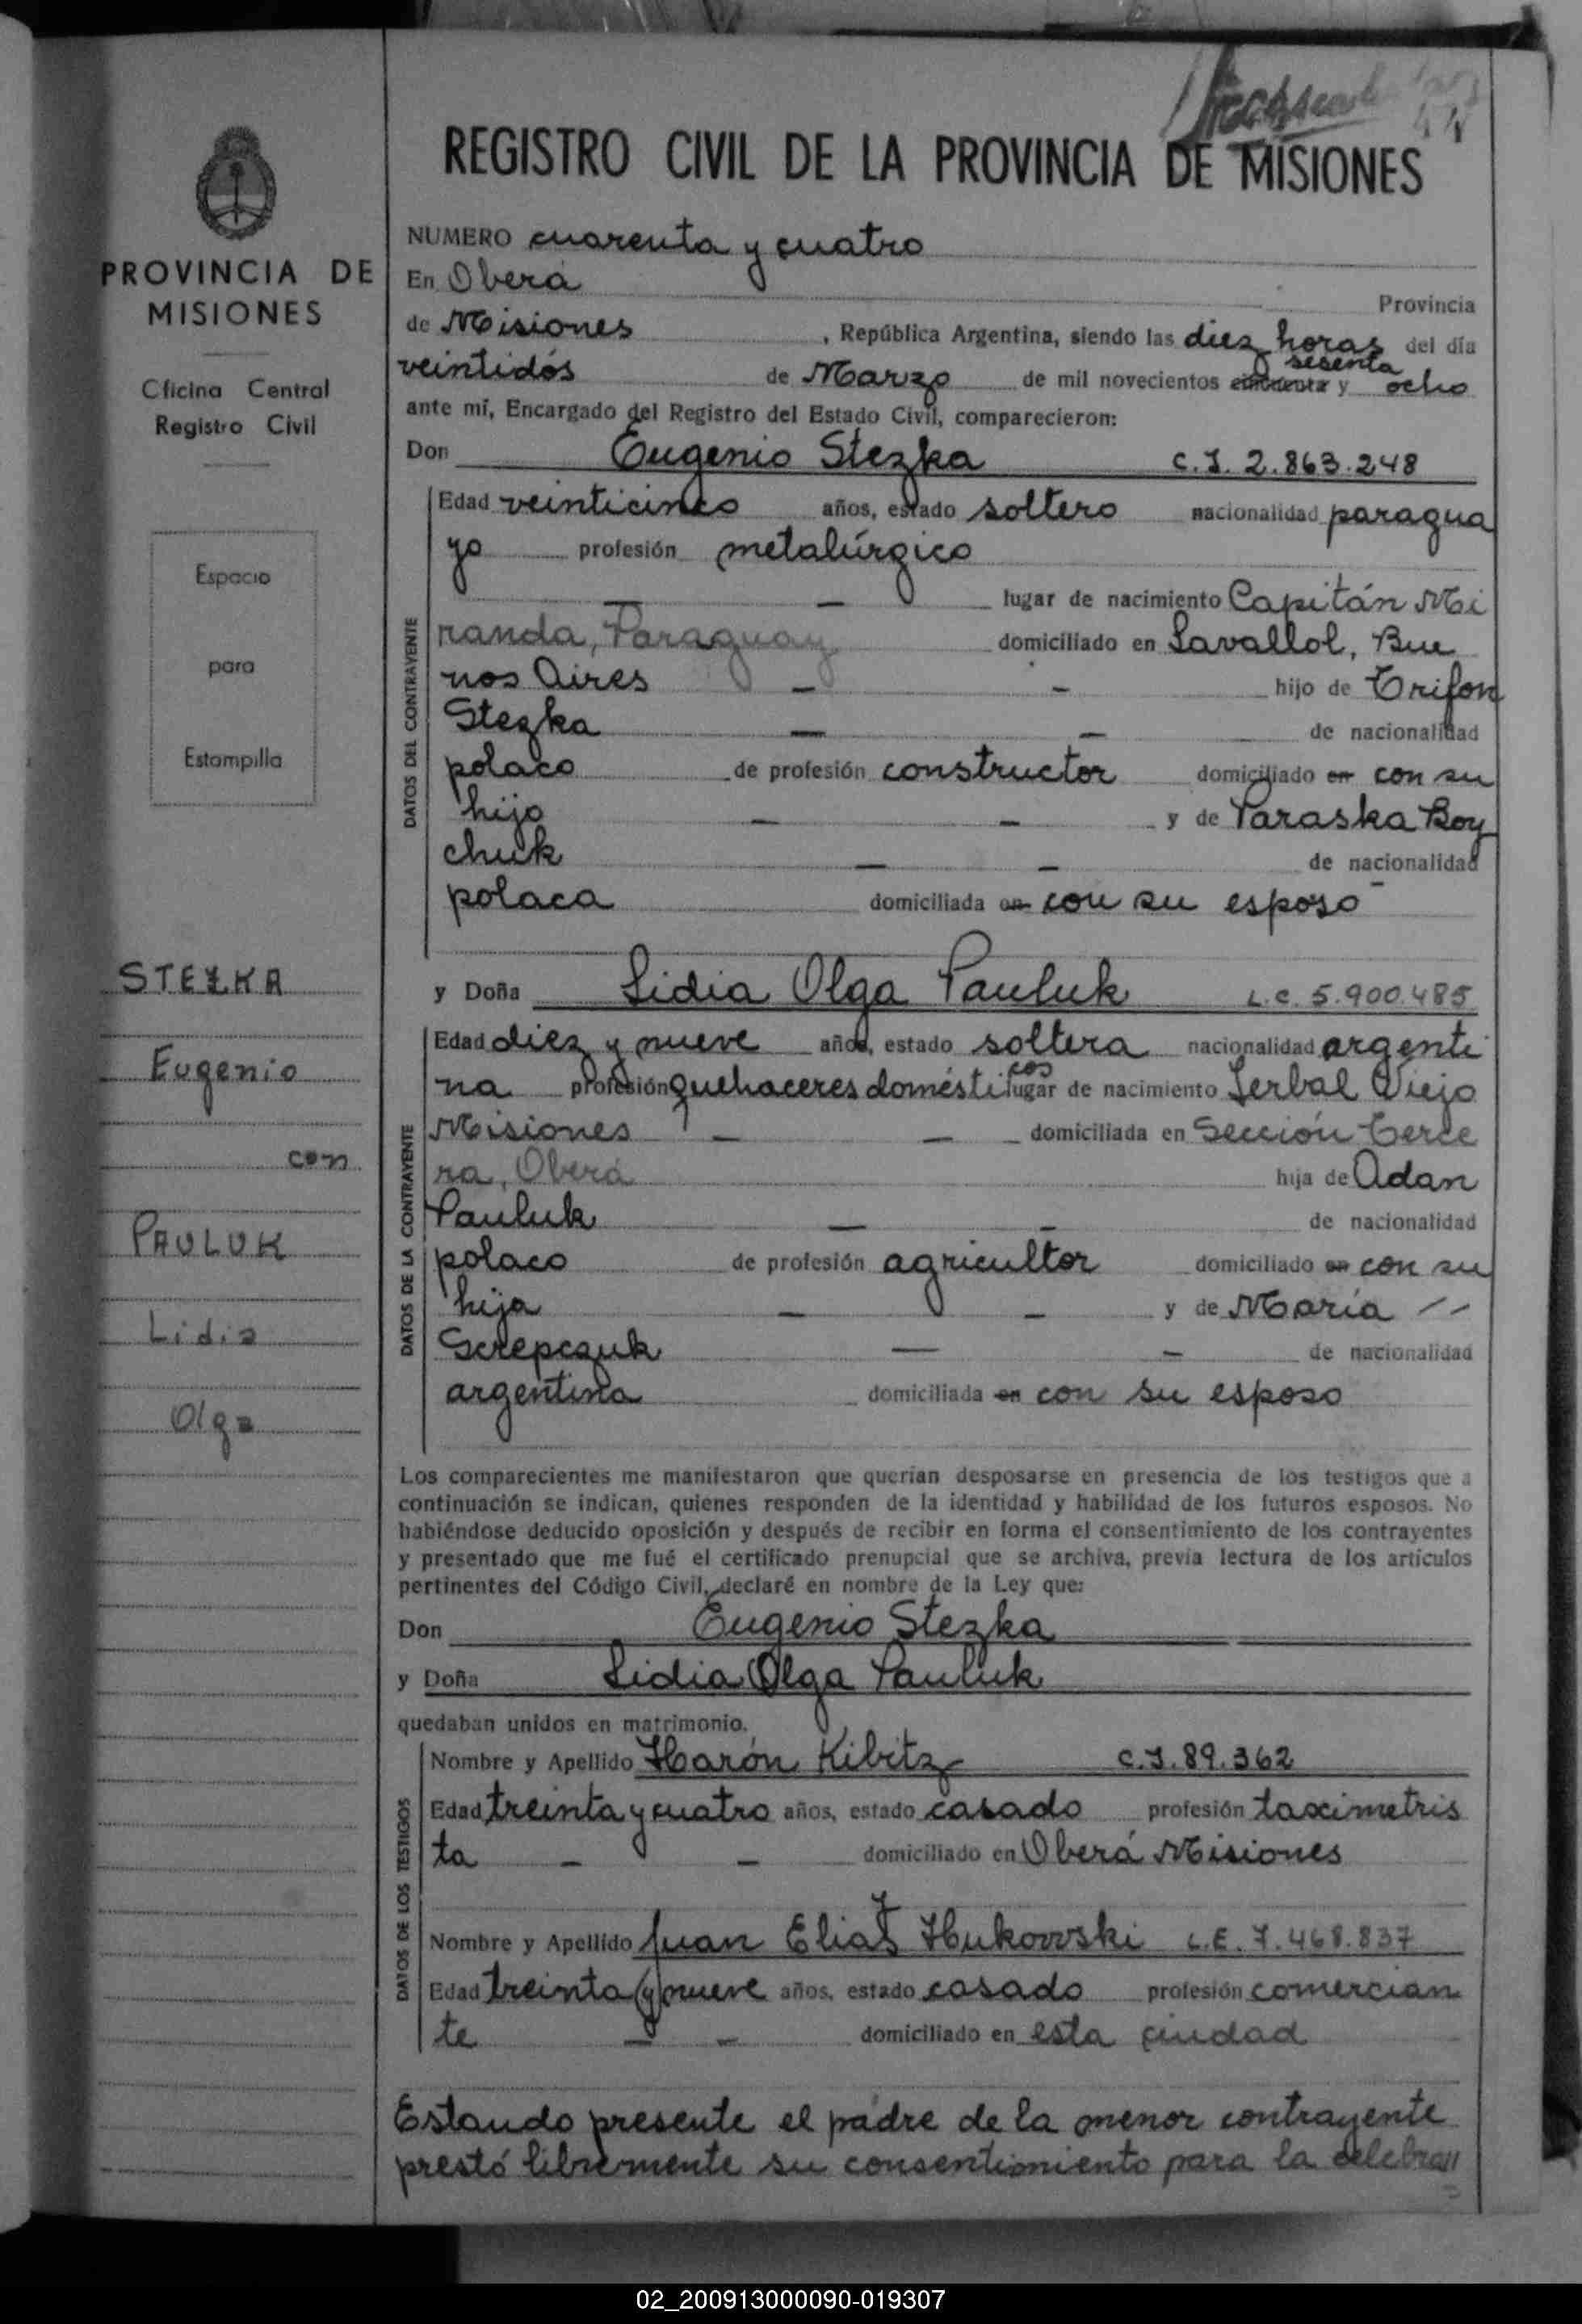 REGISTRO CIVIL DE LA PROVINCIA DE MISIONES
PROVINCIA DE
MISIONES
Oficina Central
Registro Civil
Espacio
para
Estampilla
STEZKA
Eugenio
con
PAULUK
Lidia
Olga
NUMERO cuarenta y cuatro
En Oberá Provincia
de Misiones , República Argentina, siendo las diez horas del día
sesenta
veintidós de Marzo de mil novecientos cincuenta y ocho
ante mí, Encargado del Registro del Estado Civil, comparecieron:
Don Eugenio Stezka C.I. 2.863.248
DATOS DEL CONTRAYENTE
Edad veinticinco años, estado soltero nacionalidad paragua
yo profesión metalúrgico
— — lugar de nacimiento Capitán Mi
randa, Paraguay domiciliado en Lavallol, Bue
nos Aires — - hijo de Trifon
Stezka — — de nacionalidad
polaco de profesión constructor domiciliado en con su
hijo — — y de Paraska Boy
chuk — — de nacionalidad
polaca domiciliada en con su esposo -
y Doña Lidia Olga Pauluk L.C. 5.900.485
DATOS DE LA CONTRAYENTE
Edad diez y nueve años, estado soltera nacionalidad argenti
na profesión quehaceres domésticos lugar de nacimiento Yerbal Viejo
Misiones — — domiciliada en Sección Terce
ra, Oberá hija de Adan
Pauluk — - de nacionalidad
polaco de profesión agricultor domiciliado en con su
hija — — y de María //
Screpczuk — — de nacionalidad
argentina domiciliada en con su esposo
Los comparecientes me manifestaron que querían desposarse en presencia de los testigos que a
continuación se indican, quienes responden de la identidad y habilidad de los futuros esposos. No
habiéndose deducido oposición y después de recibir en forma el consentimiento de los contrayentes
y presentado que me fué el certificado prenupcial que se archiva, previa lectura de los artículos
pertinentes del Código Civil, declaré en nombre de la Ley que:
Don Eugenio Stezka
y Doña Lidia Olga Pauluk
quedaban unidos en matrimonio.
DATOS DE LOS TESTIGOS
Nombre y Apellido Harón Kibitz C.I. 89.362
Edad treinta y cuatro años, estado casado profesión taximetris
ta — — domiciliado en Oberá Misiones
Nombre y Apellido Juan Elias Hukowski L.E. 7.468.837
Edad treinta y nueve años, estado casado profesión comercian
te — — domiciliado en esta ciudad
Estando presente el padre de la menor contrayente
prestó libremente su consentimiento para la celebra//
02_200913000090-019307